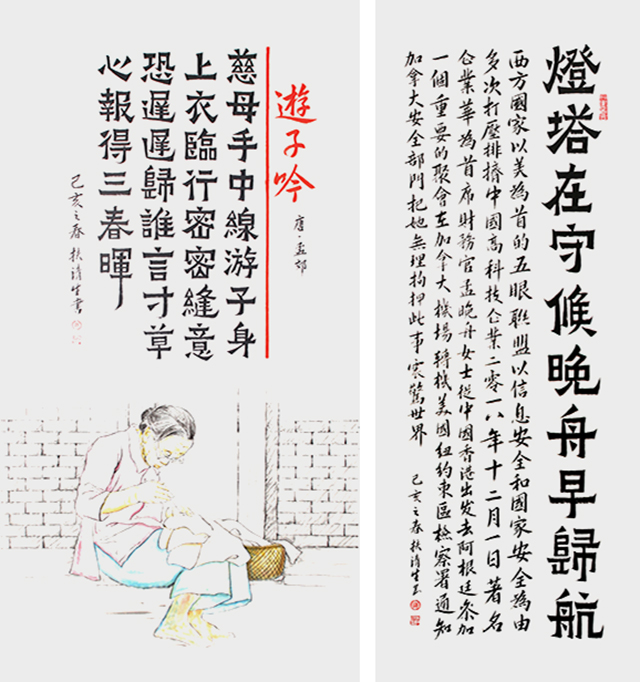 遊子吟
唐·孟郊
慈母手中線游子身
上衣臨行密密縫意
恐遲遲歸誰言才草
心報得三春暉
己亥之春 扶清生書
燈塔在守候晚舟早歸航
西方國家以美為首的五眼聯盟以信息安全和國家安全為由
多次打壓排擠中國高科技企業二零一八年十二月一日著名
企業華為首席財務官孟晚舟女士從中國香港出發去阿根廷參加
一個重要的聚會在加拿大機場轉機美國紐約東區檢察署通知
加拿大安全部門把她無理拘押此事震驚世界
己亥之春扶清生書